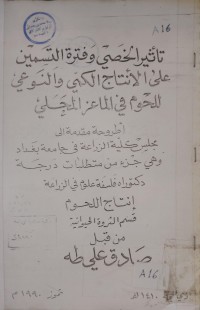 A16
تأثير الخصي وفترة التسمين
على الإنتاج الكمي والنوعي
للحوم في الماعز المحلي
أطروحة مقدمة إلى
مجلس كلية الزراعة في جامعة بغداد
وهي جزء من متطلبات درجة
دكتوراه فلسفة علوم في الزراعة
إنتاج اللحوم
قسم الثروة الحيوانية
من قبل
صادق علي طه
A16
١٤١٠ هـ
تموز ١٩٩٠ م